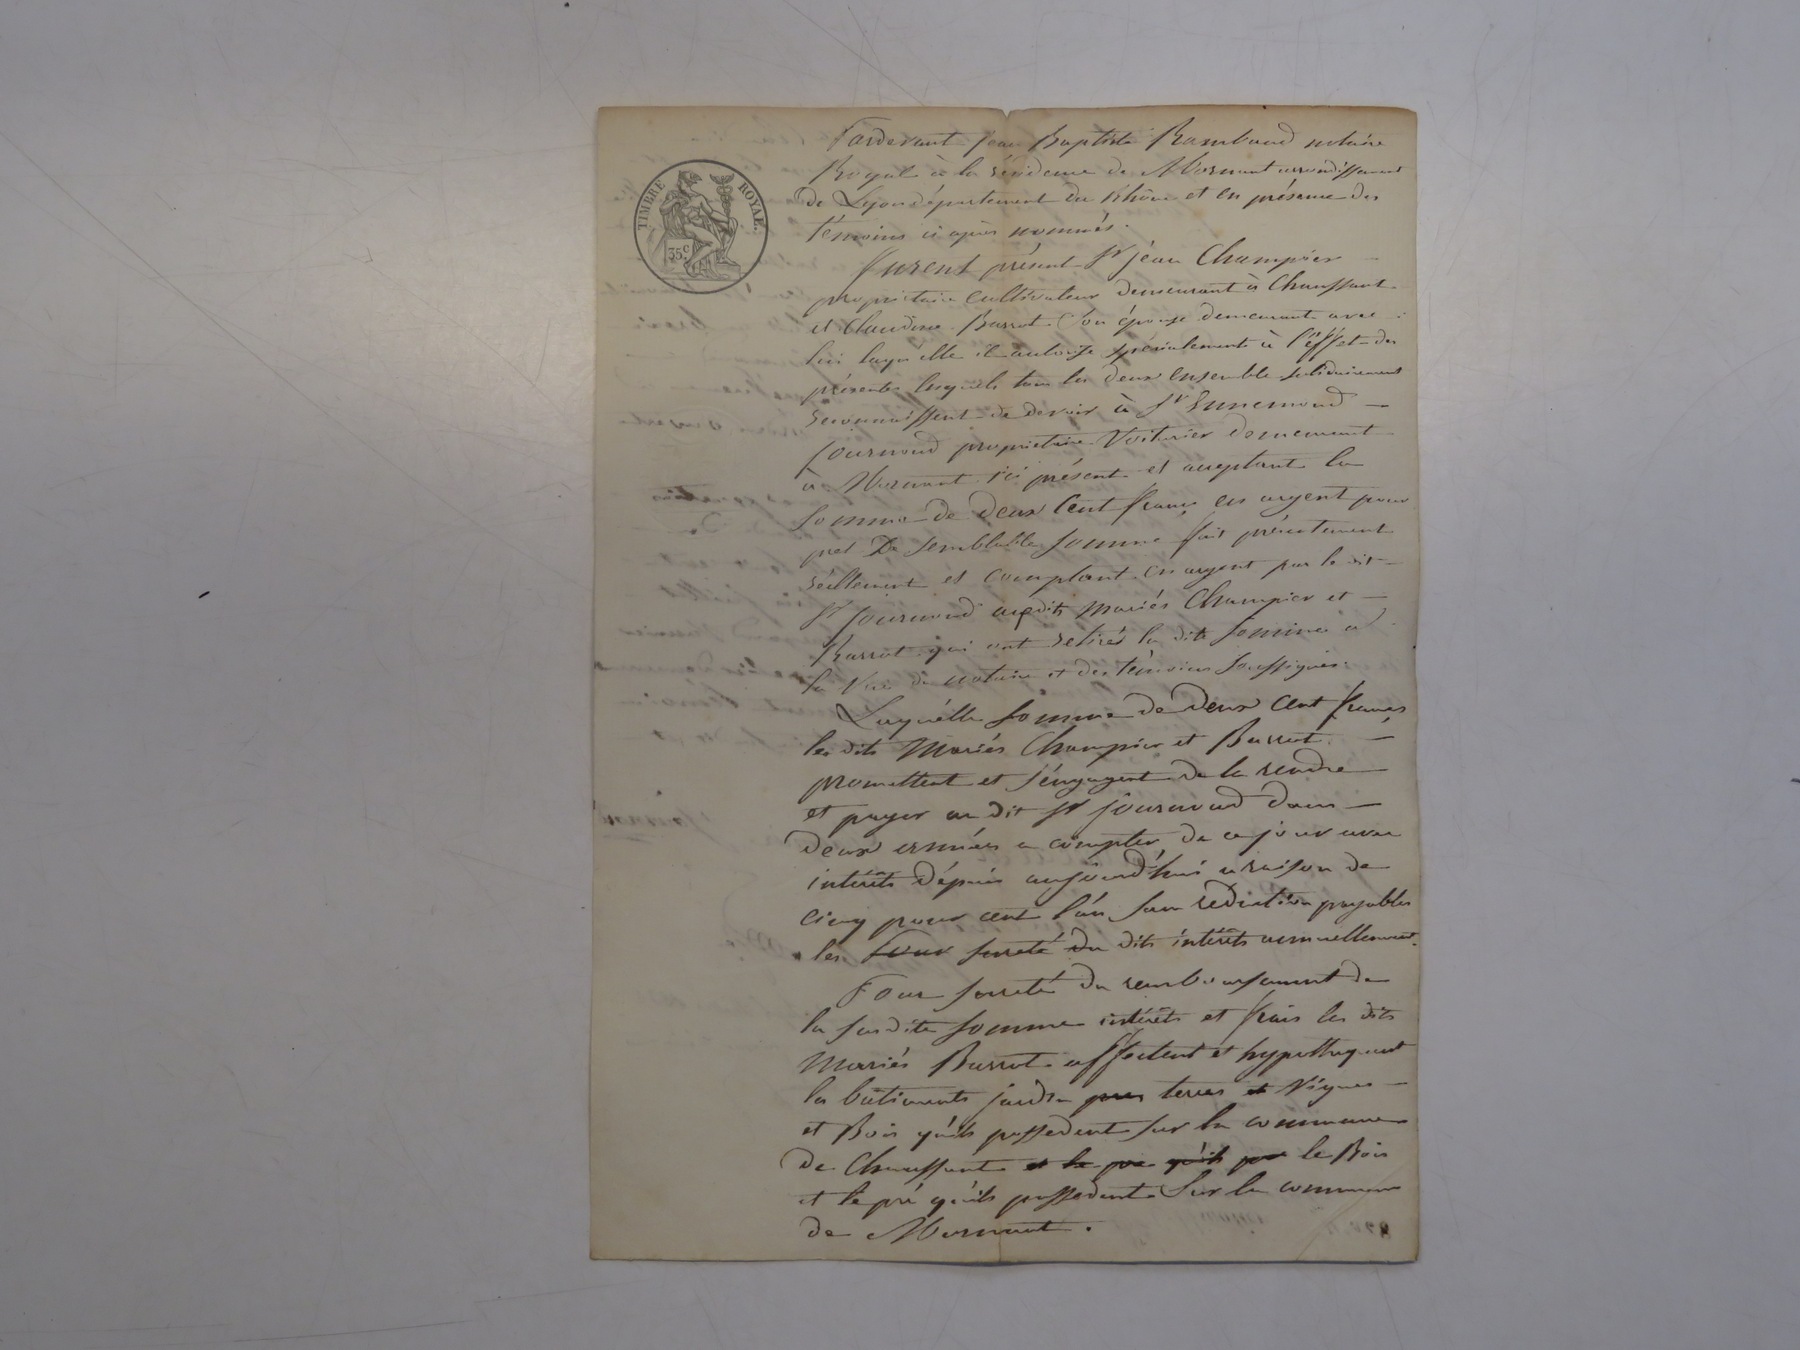 TIMBRE ROYAL.
35 c
Pardevant Jean Baptiste Rambaud notaire
Royal à la résidence de Mornant arrondissement
de Lyon département du Rhône et en présence des
témoins ci après nommés.
furent présent Sr jéan Champier
propriétaire cultivateur demeurant à Chaussant
et Claudine Barrot son épouse demeurante avec
lui laquélle il autorise spécialement à l'éffet des
présentes lesquels tous les deux ensemble solidairement
reconnaissent de devoir à Sr Ennemond
journoud propriétaire Voiturier demeurant
à Mornant ici présent et acceptant la
somme de deux Cent francs en argent pour
pret De semblable somme fait présentement
réellement et comptant en argent par le dit
Sr journoud auxdits mariés Champier et
Barrot qui ont retirés la dite somme a
la Vue du notaire et des témoins soussignés.
Laquélle somme de deux Cent francs
les dits Mariés Champier et Barrot
promettent et s'éngagent de la rendre
et payer au dit Sr journoud dans
deux années a compter de ce jour avec
intérêts dépuis aujourd'hui a raison de
cinq pour cent l'an sans rédiction payables
les Pour sureté du dits intérêts annuellement.
Pour surreté du remboursement de
la susdite somme intérêts et frais les dits
Mariés Barrot affectent et hypothequent
les bâtiments jardin pres terres et Vignes
et Bois qu'ils possedent sur la commune
de Chaussant et le pre qu'ils pos le Bois
et le pré qu'ils possedent sur la commune
de Mornant.